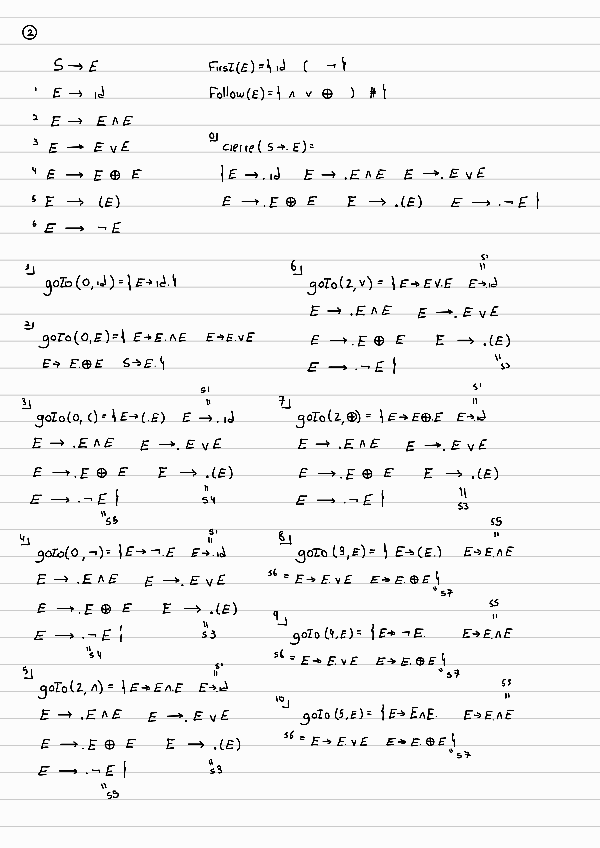 2
S → E First(E) = { id ( ¬ }
1 E → id Follow(E) = { ∧ ∨ ⊕ ) # }
2 E → E ∧ E
3 E → E ∨ E 0) cierre(S → .E) =
4 E → E ⊕ E { E → .id E → .E ∧ E E → .E ∨ E
5 E → (E) E → .E ⊕ E E → .(E) E → .¬E }
6 E → ¬E
1) goTo(0, id) = { E → id. }
2) goTo(0, E) = { E → E.∧E E → E.∨E
E → E.⊕E S → E. }
3) goTo(0, () = { E → (.E) E → .id
s1
"
E → .E ∧ E E → .E ∨ E
E → .E ⊕ E E → .(E)
E → .¬E }
"
s4
"
s3
4) goTo(0, ¬) = { E → ¬.E E → .id
s1
"
E → .E ∧ E E → .E ∨ E
E → .E ⊕ E E → .(E)
E → .¬E }
"
s3
"
s4
5) goTo(2, ∧) = { E → E∧.E E → .id
s1
"
E → .E ∧ E E → .E ∨ E
E → .E ⊕ E E → .(E)
E → .¬E }
"
s3
"
s3
6) goTo(2, ∨) = { E → E∨.E E → .id
s1
"
E → .E ∧ E E → .E ∨ E
E → .E ⊕ E E → .(E)
E → .¬E }
"
s3
7) goTo(2, ⊕) = { E → E⊕.E E → .id
s1
"
E → .E ∧ E E → .E ∨ E
E → .E ⊕ E E → .(E)
E → .¬E }
"
s3
8) goTo(3, E) = { E → (E.) E → E.∧E
s5
"
s6 = E → E.∨E E → E.⊕E }
" s7
9) goTo(4, E) = { E → ¬E. E → E.∧E
s5
"
s6 = E → E.∨E E → E.⊕E }
" s7
10) goTo(5, E) = { E → E∧E. E → E.∧E
s5
"
s6 = E → E.∨E E → E.⊕E }
" s7